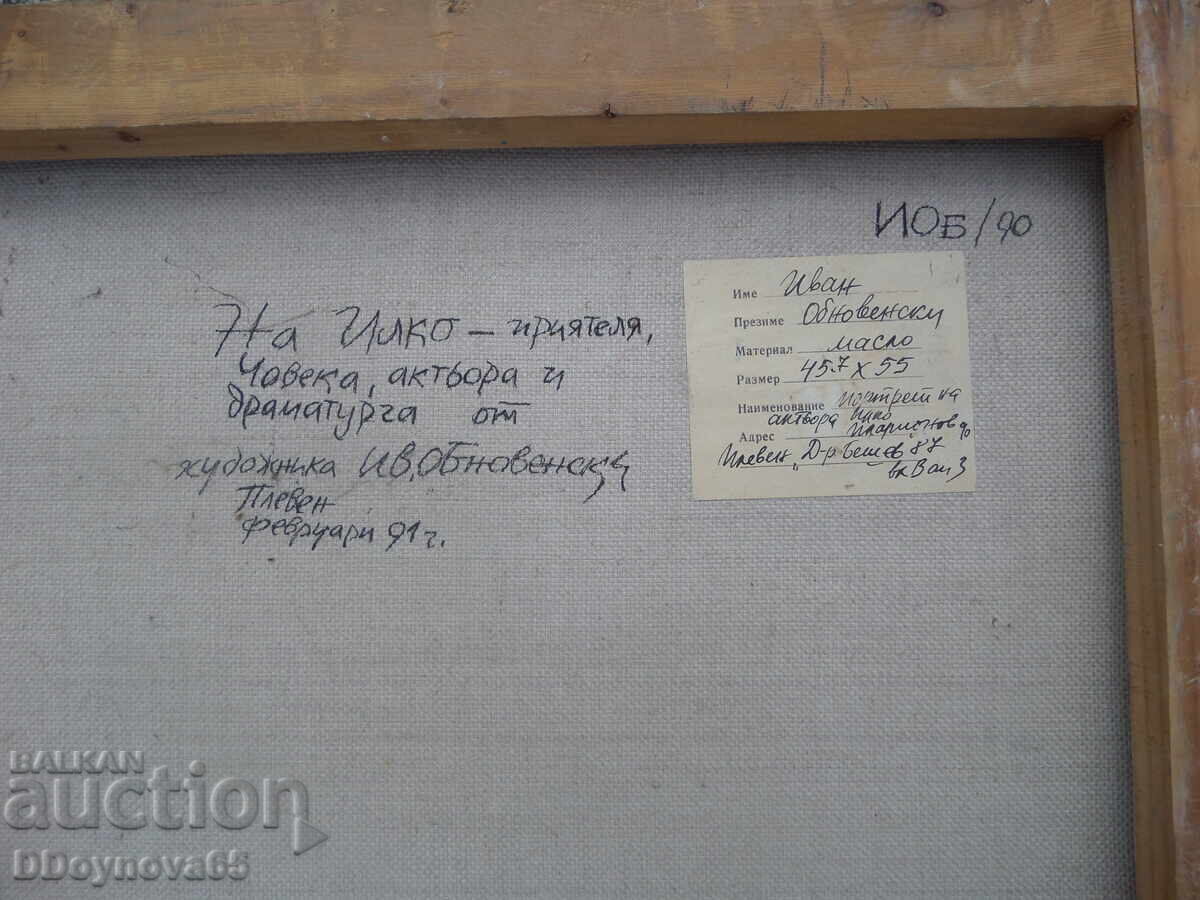 ИОБ/90
На Илко – приятеля,
Човека, актьора и
драматурга от
художника Ив. Обновенски
Плевен
февруари 91 г.
Име Иван
Презиме Обновенски
Материал масло
Размер 457 x 55
Наименование портрет на
актьора Илко
Адрес Иларионов 90
Плевен "Д-р Бешев 87
вх В ап 3
BALKAN
auction
DDoynova65